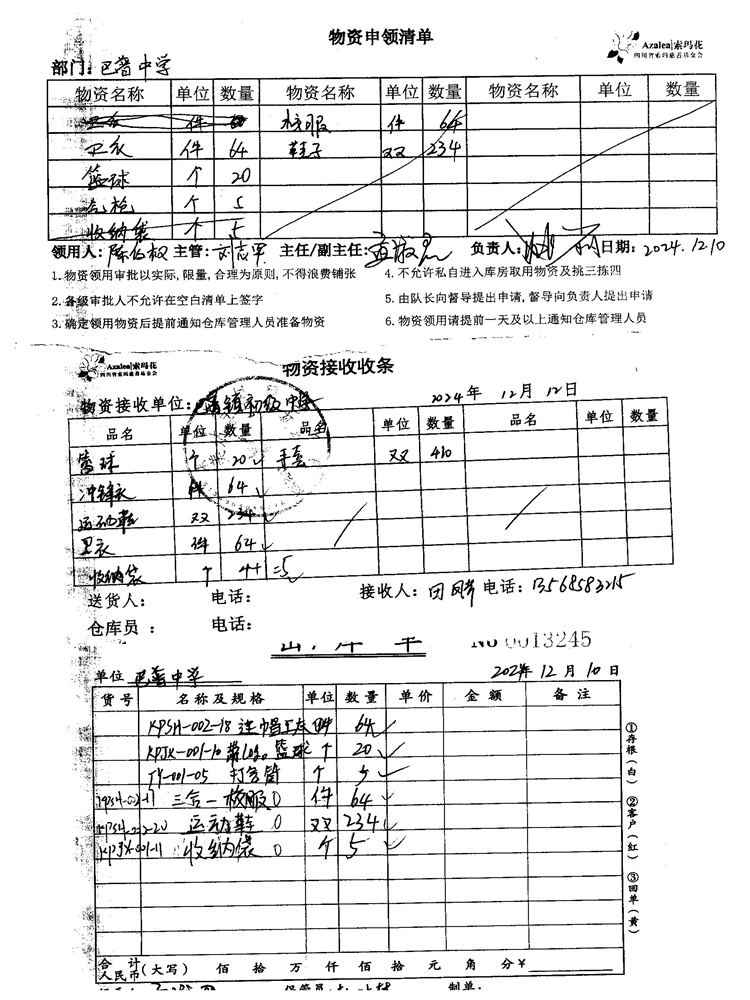 物资申领清单
Azalea|索玛花
四川省索玛慈善基金会
部门：巴普中学
物资名称 单位 数量 物资名称 单位 数量 物资名称 单位 数量
卫衣 件 校服 件 64
卫衣 件 64 鞋子 双 234
篮球 个 20
气枪 个 5
收纳袋 个 5
领用人： 主管： 主任/副主任： 负责人： 日期：2024.12.10
1.物资领用审批以实际,限量,合理为原则,不得浪费铺张 4.不允许私自进入库房取用物资及挑三拣四
2.各级审批人不允许在空白清单上签字 5.由队长向督导提出申请,督导向负责人提出申请
3.确定领用物资后提前通知仓库管理人员准备物资 6.物资领用请提前一天及以上通知仓库管理人员
Azalea|索玛花
四川省索玛慈善基金会
物资接收收条
物资接收单位：普镇初级中学 2024年 12月 12日
品名 单位 数量 品名 单位 数量 品名 单位 数量
篮球 个 20 手套 双 410
冲锋衣 件 64
运动鞋 双 234
里衣 件 64
收纳袋 个 4+1=5
送货人： 电话： 接收人： 电话：13568583215
仓库员 ： 电话：
No 0013245
单位 巴普中学 2024年12月10日
货号 名称及规格 单位 数量 单价 金额 备注
KPSH-002-18 连帽卫衣 件 64
KPJK-001-10 带logo篮球 个 20
TY-001-05 打气筒 个 5
三合一校服 件 64
运动鞋 双 234
收纳袋 个 5
①存根(白) ②客户(红) ③回单(黄)
合计
人民币(大写) 佰 拾 万 仟 佰 拾 元 角 分¥
保管员: 制单: